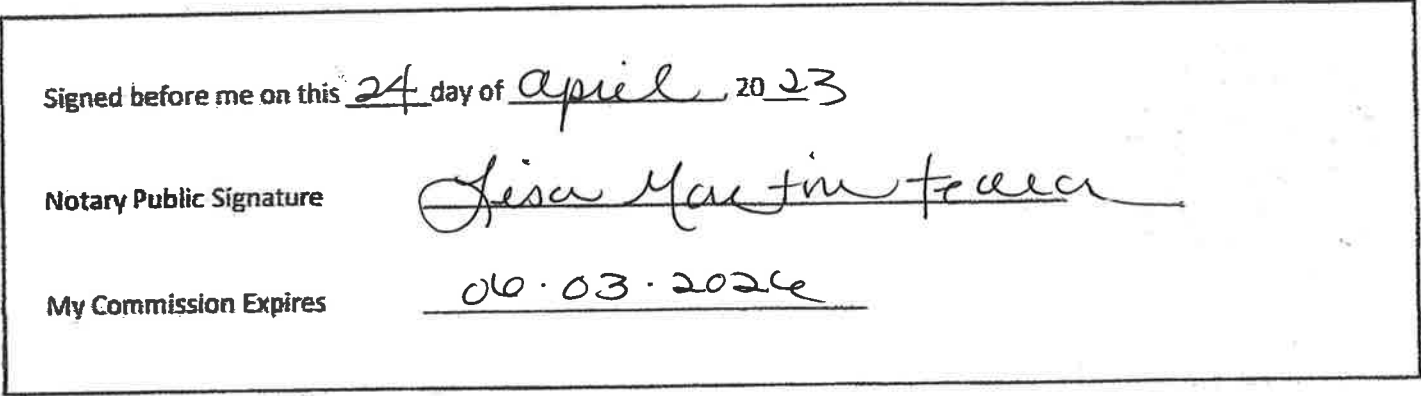 Signed before me on this 24 day of April, 2023
Notary Public Signature Lisa Martin
My Commission Expires 06.03.2026